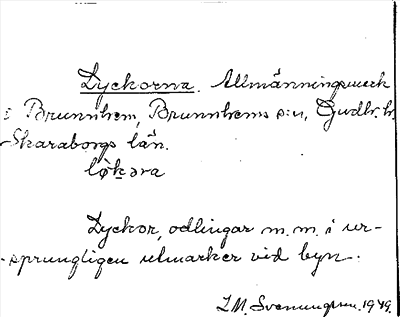 Lyckorna. Allmänningsmark
i Brunnhem, Brunnhems s:n, Gudh. h.
Skaraborgs län.
Lyckor, odlingar m. m. i ur-
-sprungligen utmarker vid byn.
I. M. Svenungsson. 1949.